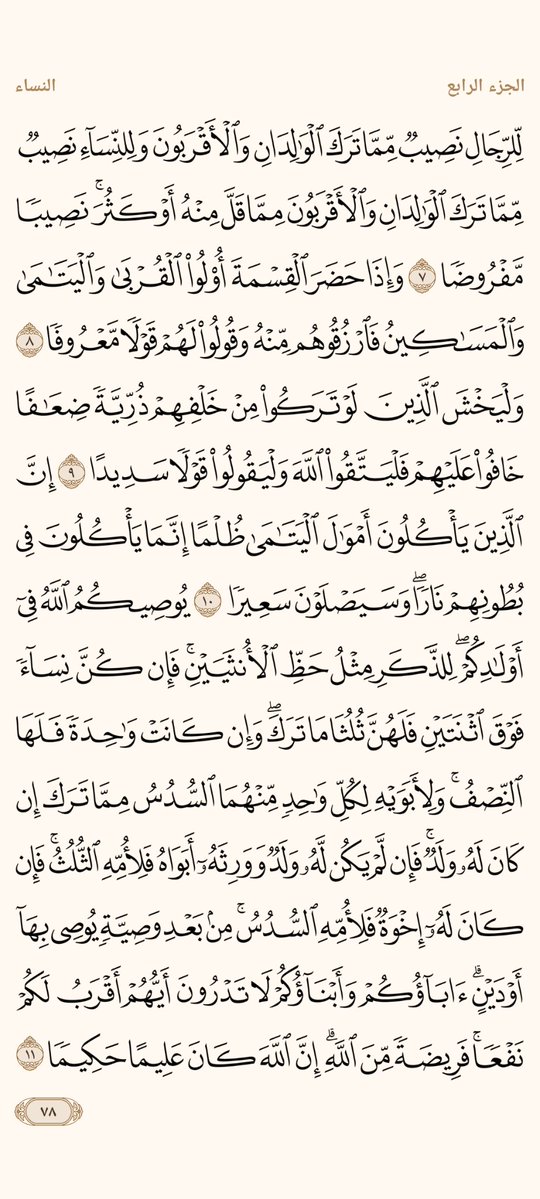 الجزء الرابع
النساء
لِّلرِّجَالِ نَصِيبٌ مِّمَّا تَرَكَ ٱلْوَٰلِدَانِ وَٱلْأَقْرَبُونَ وَلِلنِّسَآءِ نَصِيبٌ
مِّمَّا تَرَكَ ٱلْوَٰلِدَانِ وَٱلْأَقْرَبُونَ مِمَّا قَلَّ مِنْهُ أَوْ كَثُرَ ۚ نَصِيبًا
مَّفْرُوضًا ٧ وَإِذَا حَضَرَ ٱلْقِسْمَةَ أُو۟لُوا۟ ٱلْقُرْبَىٰ وَٱلْيَتَٰمَىٰ
وَٱلْمَسَٰكِينُ فَٱرْزُقُوهُم مِّنْهُ وَقُولُوا۟ لَهُمْ قَوْلًا مَّعْرُوفًا ٨
وَلْيَخْشَ ٱلَّذِينَ لَوْ تَرَكُوا۟ مِنْ خَلْفِهِمْ ذُرِّيَّةً ضِعَٰفًا
خَافُوا۟ عَلَيْهِمْ فَلْيَتَّقُوا۟ ٱللَّهَ وَلْيَقُولُوا۟ قَوْلًا سَدِيدًا ٩ إِنَّ
ٱلَّذِينَ يَأْكُلُونَ أَمْوَٰلَ ٱلْيَتَٰمَىٰ ظُلْمًا إِنَّمَا يَأْكُلُونَ فِى
بُطُونِهِمْ نَارًا ۖ وَسَيَصْلَوْنَ سَعِيرًا ١٠ يُوصِيكُمُ ٱللَّهُ فِىٓ
أَوْلَٰدِكُمْ ۖ لِلذَّكَرِ مِثْلُ حَظِّ ٱلْأُنثَيَيْنِ ۚ فَإِن كُنَّ نِسَآءً
فَوْقَ ٱثْنَتَيْنِ فَلَهُنَّ ثُلُثَا مَا تَرَكَ ۖ وَإِن كَانَتْ وَٰحِدَةً فَلَهَا
ٱلنِّصْفُ ۚ وَلِأَبَوَيْهِ لِكُلِّ وَٰحِدٍ مِّنْهُمَا ٱلسُّدُسُ مِمَّا تَرَكَ إِن
كَانَ لَهُۥ وَلَدٌ ۚ فَإِن لَّمْ يَكُن لَّهُۥ وَلَدٌ وَوَرِثَهُۥٓ أَبَوَاهُ فَلِأُمِّهِ ٱلثُّلُثُ ۚ فَإِن
كَانَ لَهُۥٓ إِخْوَةٌ فَلِأُمِّهِ ٱلسُّدُسُ ۚ مِنۢ بَعْدِ وَصِيَّةٍ يُوصِى بِهَآ
أَوْ دَيْنٍ ۗ ءَابَآؤُكُمْ وَأَبْنَآؤُكُمْ لَا تَدْرُونَ أَيُّهُمْ أَقْرَبُ لَكُمْ
نَفْعًا ۚ فَرِيضَةً مِّنَ ٱللَّهِ ۗ إِنَّ ٱللَّهَ كَانَ عَلِيمًا حَكِيمًا ١١
٧٨